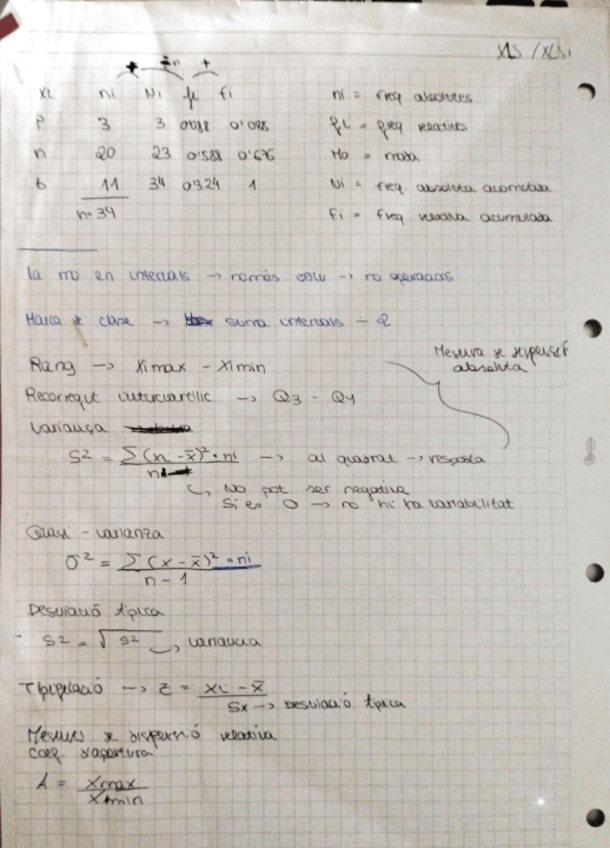 + ÷n +
xi ni Ni fi Fi
P 3 3 0'088 0'088
n 20 23 0'588 0'676
b 11 34 0'324 1
n=34
ni = freq absolutes
fi = freq relatives
Mo = moda
Ni = freq absoluta acumulada
Fi = freq relativa acumulada
la mo en intervals → només observ → no operacions
Marca de clase → suma intervals ÷ 2
Rang → Ximax - Ximin
Recorregut interquartílic → Q3 - Q1
Mesura de dispersió
absoluta
Variança
S² = Σ(xi - x̄)² · ni → al quadrat → resposta
n
↳ No pot ser negativa
Si es 0 → no hi ha variabilitat
Quasi - varianza
σ² = Σ(x - x̄)² · ni
n - 1
Desviació típica
S2 = √S² → variancia
Tipificació → Z = xi - x̄
Sx → Desviació típica
Mesures de dispersió relativa
coef. d'apertura
A = Xmax
Xmin